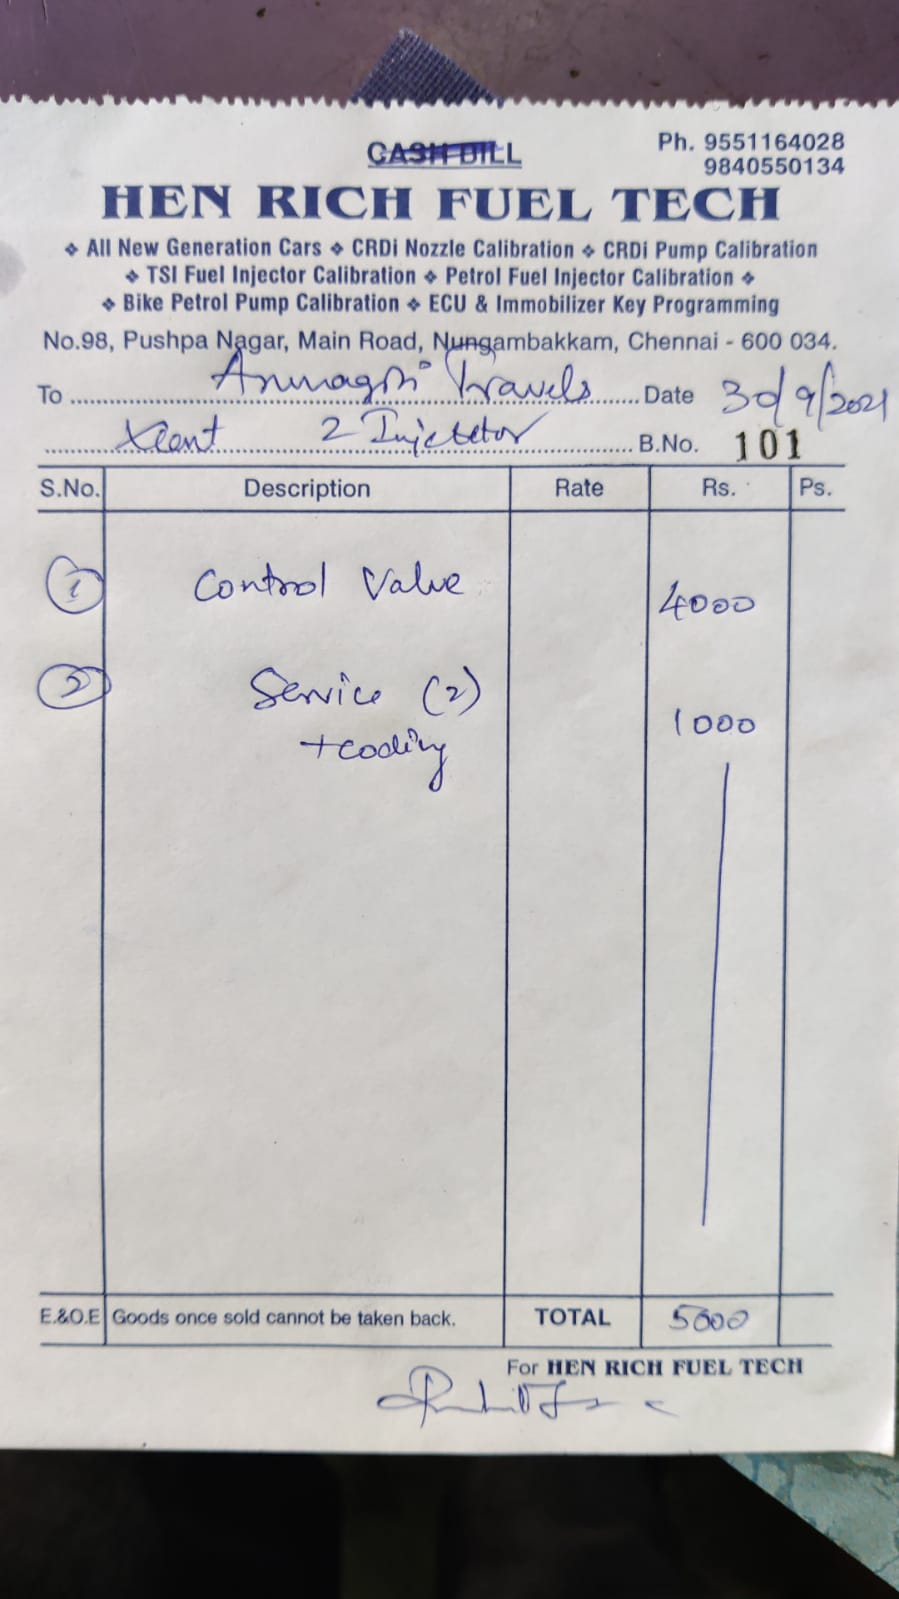 CASH BILL
Ph. 9551164028
9840550134
HEN RICH FUEL TECH
❖ All New Generation Cars ❖ CRDi Nozzle Calibration ❖ CRDi Pump Calibration
❖ TSI Fuel Injector Calibration ❖ Petrol Fuel Injector Calibration ❖
❖ Bike Petrol Pump Calibration ❖ ECU & Immobilizer Key Programming
No.98, Pushpa Nagar, Main Road, Nungambakkam, Chennai - 600 034.
To Travels Date 30/9/2021
Xcent 2 Injector B.No. 101
S.No. Description Rate Rs. Ps.
1 Control Valve 4000
2 Service (2) 1000
+coding
E.&O.E Goods once sold cannot be taken back. TOTAL 5000
For HEN RICH FUEL TECH